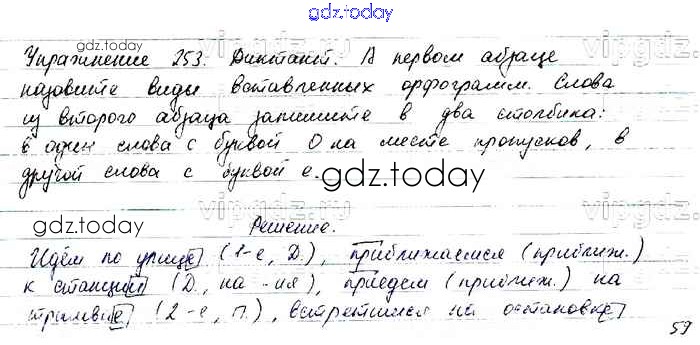 gdz.today
Упражнение 253. Диктант. В первом абзаце
gdz.today
назовите виды вставленных орфограмм. Слова
из второго абзаца запишите в два столбика:
в один слова с буквой О на месте пропусков, в
другой слова с буквой е.
gdz.today
gdz.today
Решение.
Идём по улице (1-е, Д.), приближаемся (приближ.)
к станции (Д., на -ия), приедем (приближ.) на
трамвае (2-е, П.), встретимся на остановке
59